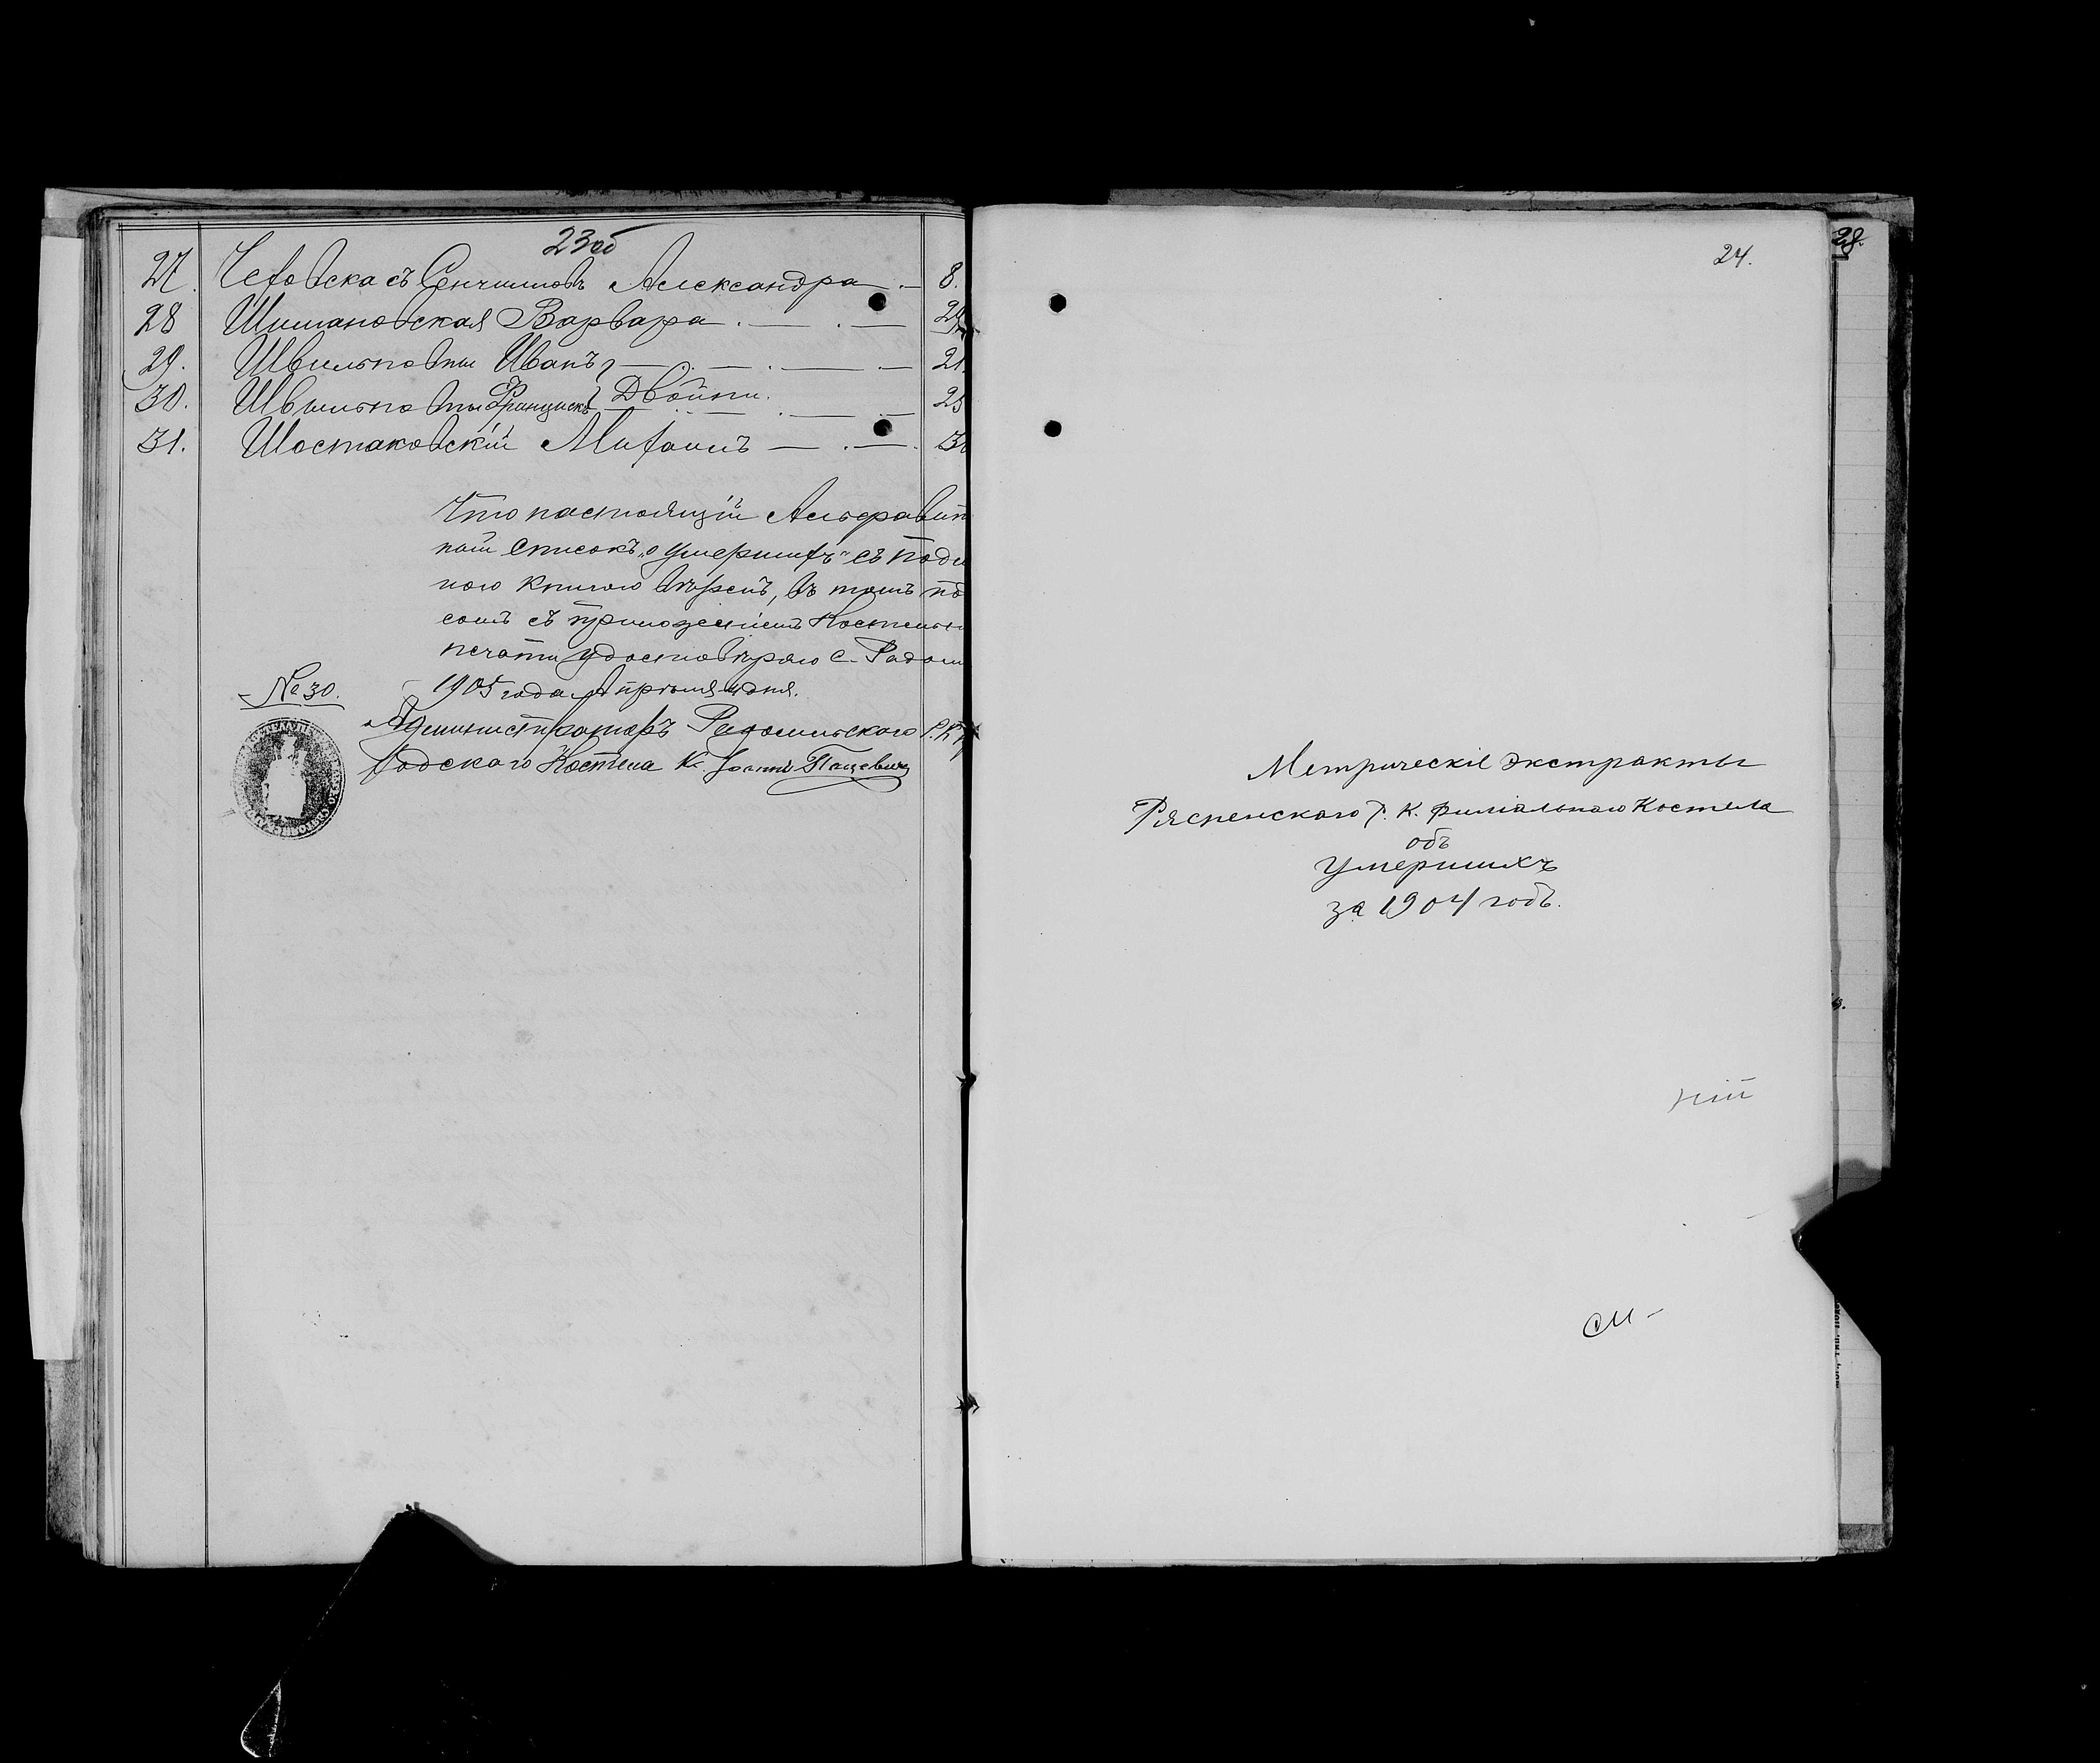 23об
27. Чеховска съ Сенчиловъ Александра . — 8.
28 Шимановская Варвара . — . — 24
29. Швильповты Иванъ — . — . — — 21.
30. Швильповты Францискъ } Двойни. — — . — — 25
31. Шостаковскій Михаилъ — . — . 30
Что настоящій Альфавит
ный списокъ „о умершихъ" съ подли
ною книгою вѣренъ, въ томъ под
сомъ съ приложеніемъ Костельн
печати удостовѣряю с. Радом
№ 30. 1905 года Апрѣля 4 дня.
Администраторъ Радомльского Р. К. П
Костела К. Іоаннъ Пацевичъ
24.
28.
Метрическіе экстракты
Рясненскаго Р. К. филіальнаго Костела
объ
умершихъ
за 1904 годъ.
ній
см -